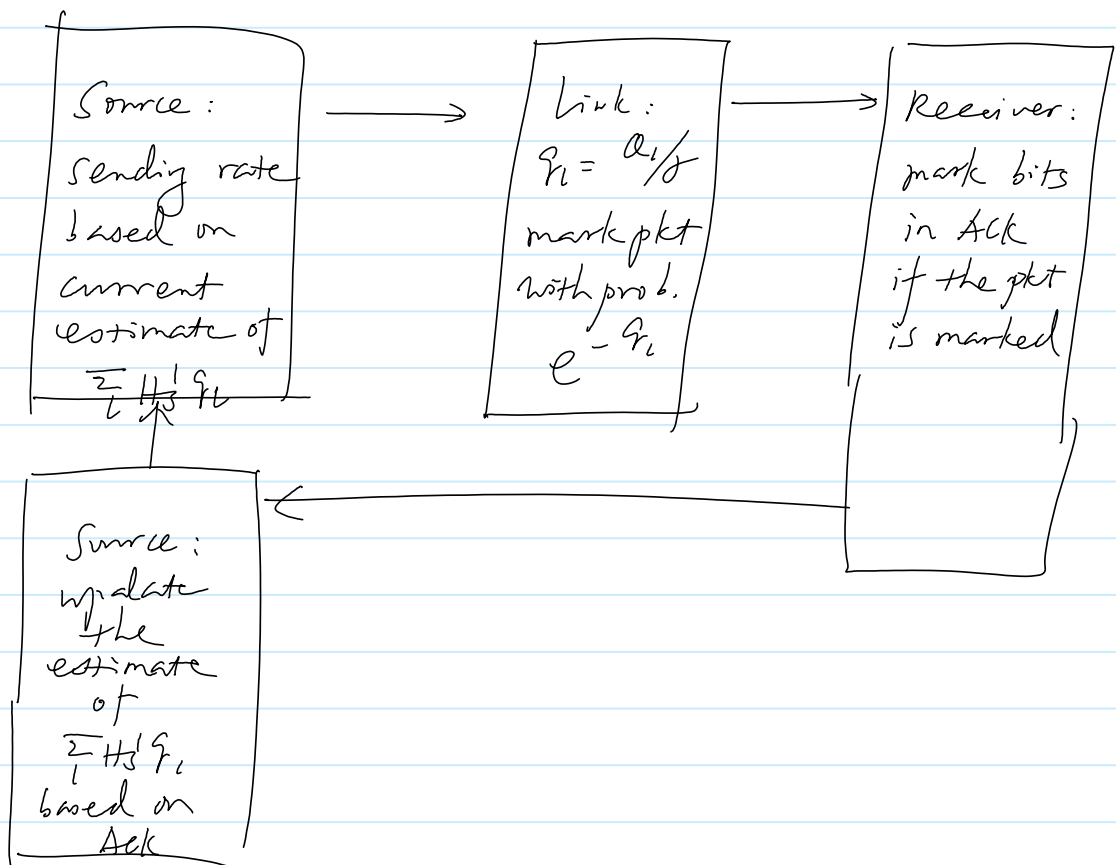 Source:
sending rate
based on
current
estimate of
Σ_l H_s^l q_l
Link:
q_l = Q_l/γ
mark pkt
with prob.
e^{-q_l}
Receiver:
mark bits
in ACK
if the pkt
is marked
Source:
update
the
estimate
of
Σ_l H_s^l q_l
based on
Ack